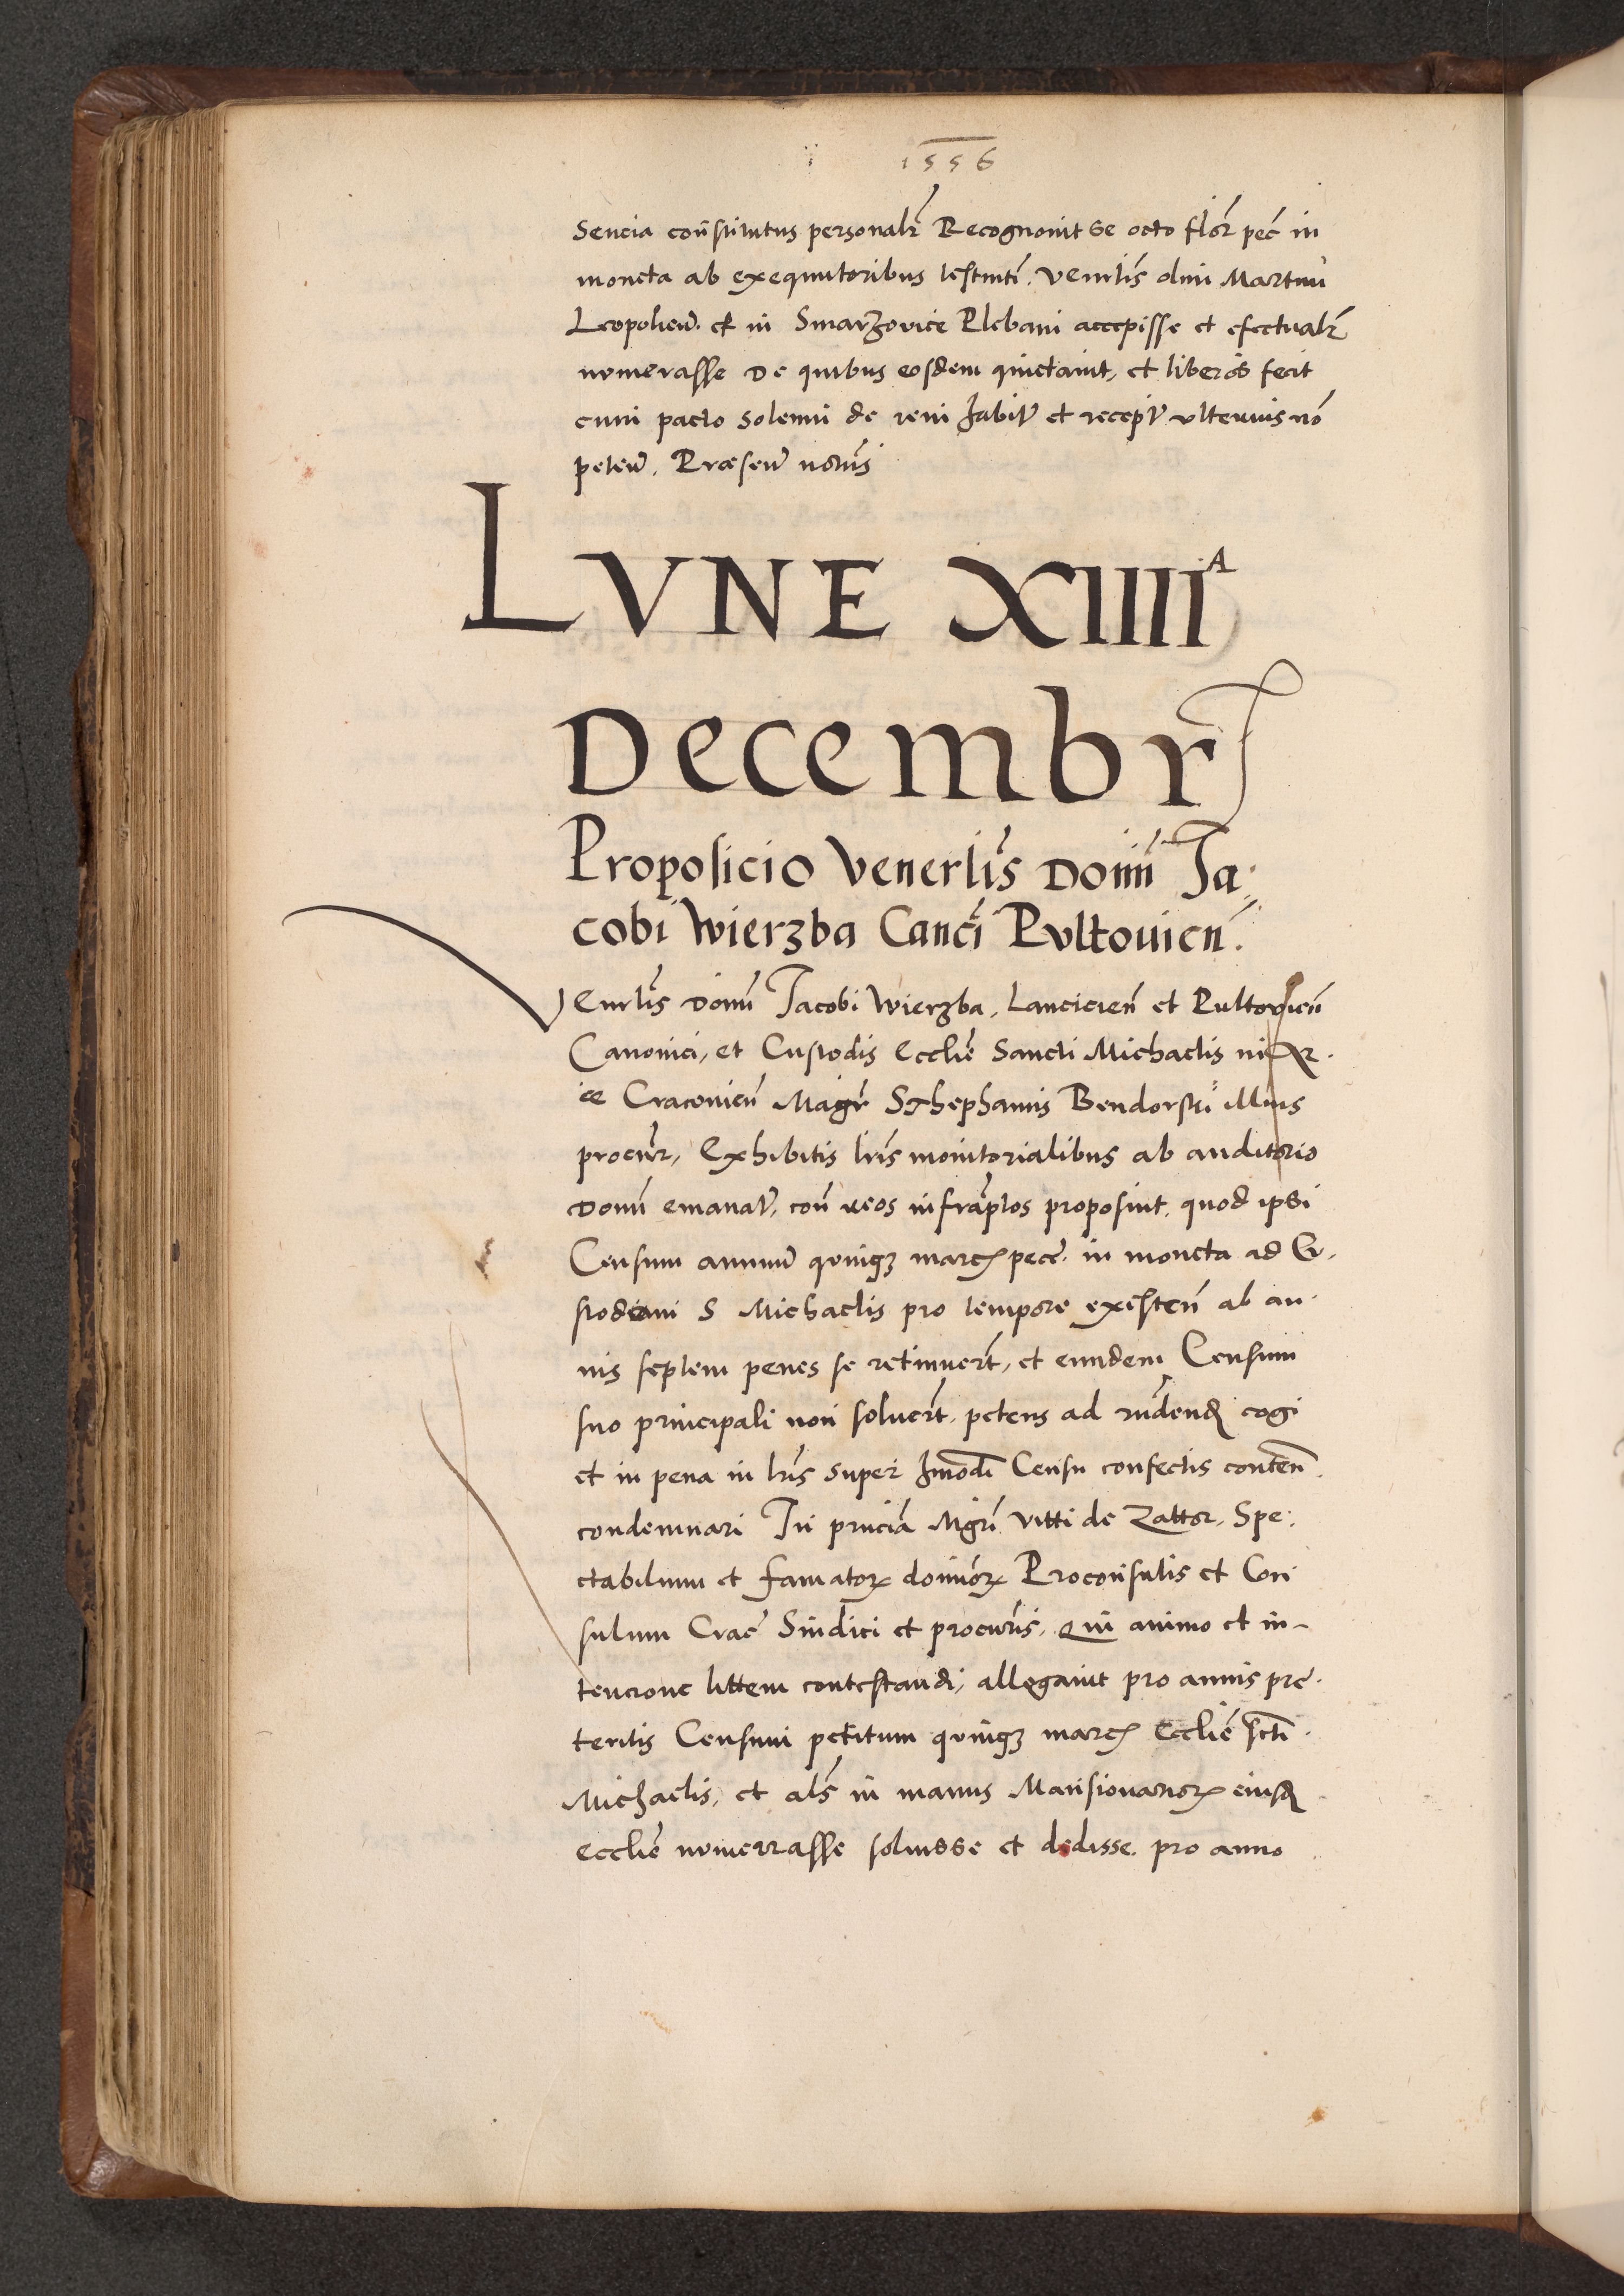 1556
sencia constitutus personalr Recognovit se octo flor pec in
moneta ab exequutoribus testmti. Venrlis olim Martini
Leopolien. et in Smarzovice Plebani accepisse et efectualr
numerasse De quibus eosdem quictavit, et liberos fecit
cum pacto solenni de rem habit et recept ulterius no
peten. Præsen notus
LVNE XIIIIA
Decembr
Proposicio Venerlis Domi Ja:
cobi Wierzba Canci Pvltovien.
Venrlis Domi Jacobi Wierzba, Lancicien et Pultovien
Canonici, et Custodis Ecclie Sancti Michaelis in
ce Cracovien Magr Sthephanus Bendorski illius
procur, Exhibitis lris monitorialibus ab auditorio
Domi emanat, con reos infraptos proposuit, quod ipsi
Censum annum quinqz marc pec. in moneta ad Cu.
stodiam S Michaelis pro tempore existen ab an.
nis septem penes se retinuert, et eundem Censum
suo principali non solvert, petens ad cogi
et in pena in lris super hmodi Censu confectis conten
condemnari In pncia Mgri Vitti de Zattor, Spe:
ctabilium et famator dominor Proconsulis et Con
sulum Crac Sindici et procuris, Qui animo et in-
tencione littem contestandi, allegavit pro annis pre.
teritis Censum petitum quinqz marc Ecclie scti.
Michaelis, et als in manus Mansionarior eiusd
Ecclie numerrasse solvisse et dedisse. pro anno